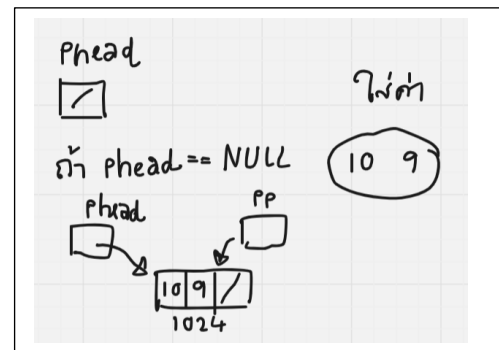 Phead
ใส่ค่า
ถ้า phead == NULL
10 9
Phead
PP
10 9
1024